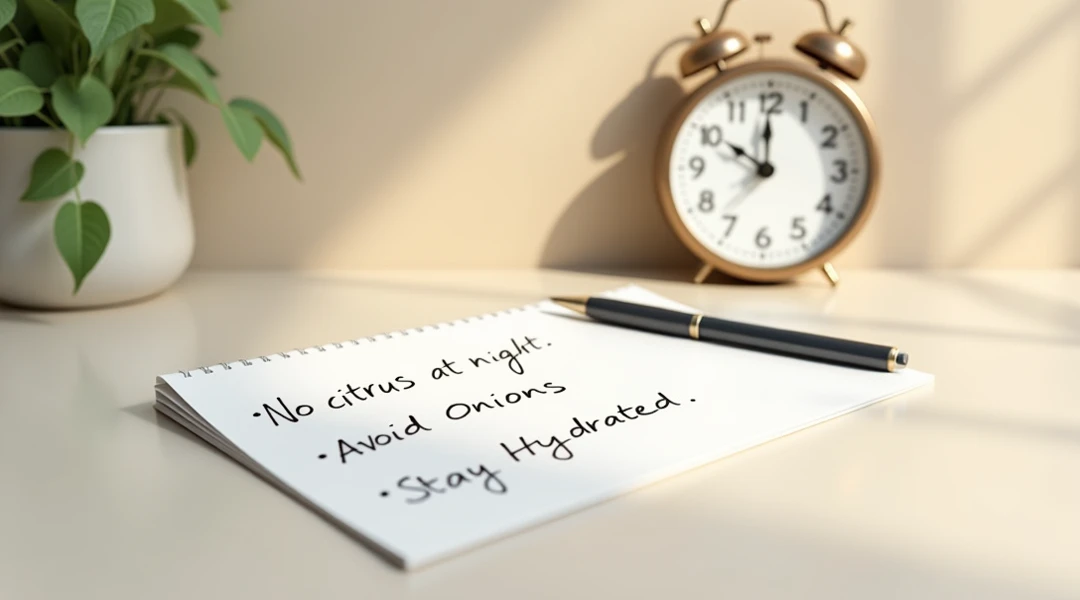 12
1
2
3
4
5
6
7
8
9
10
11
•No citrus at night.
•Avoid Onions
•Stay Hydrated.